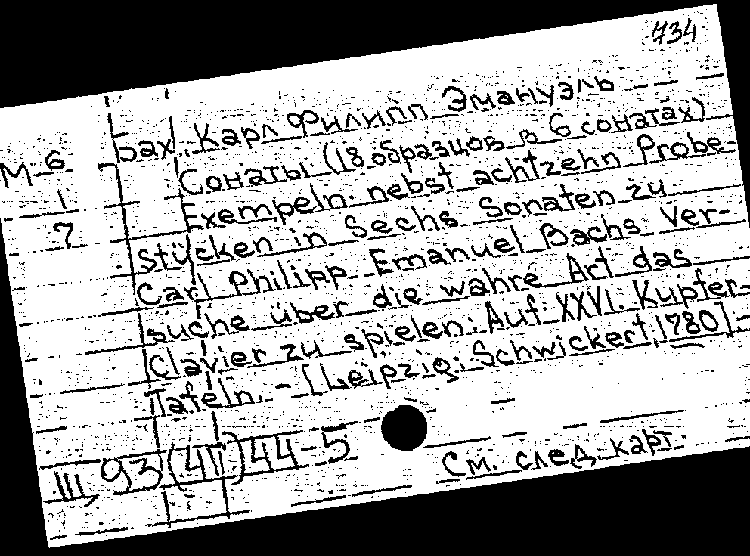 734
Бах, Карл Филипп Эмануэль
М-6
1
7
Сонаты (18 образцов в 6 сонатах)
Exempeln nebst achtzehn Probe-
stücken in Sechs Sonaten zu
Carl Philipp Emanuel Bachs Ver-
suche über die wahre Art das
Clavier zu spielen: Auf XXVI. Kupfer-
Tafeln. - [Leipzig: Schwickert, 1780] -
III, 93(4П)44-5
См. след. карт.